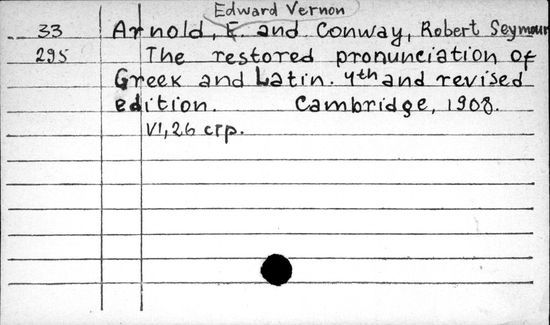 Edward Vernon
33 Arnold, E. and Conway, Robert Seymour
295 The restored pronunciation of
Greek and Latin. 4th and revised
edition. Cambridge, 1908.
VI, 26 стр.